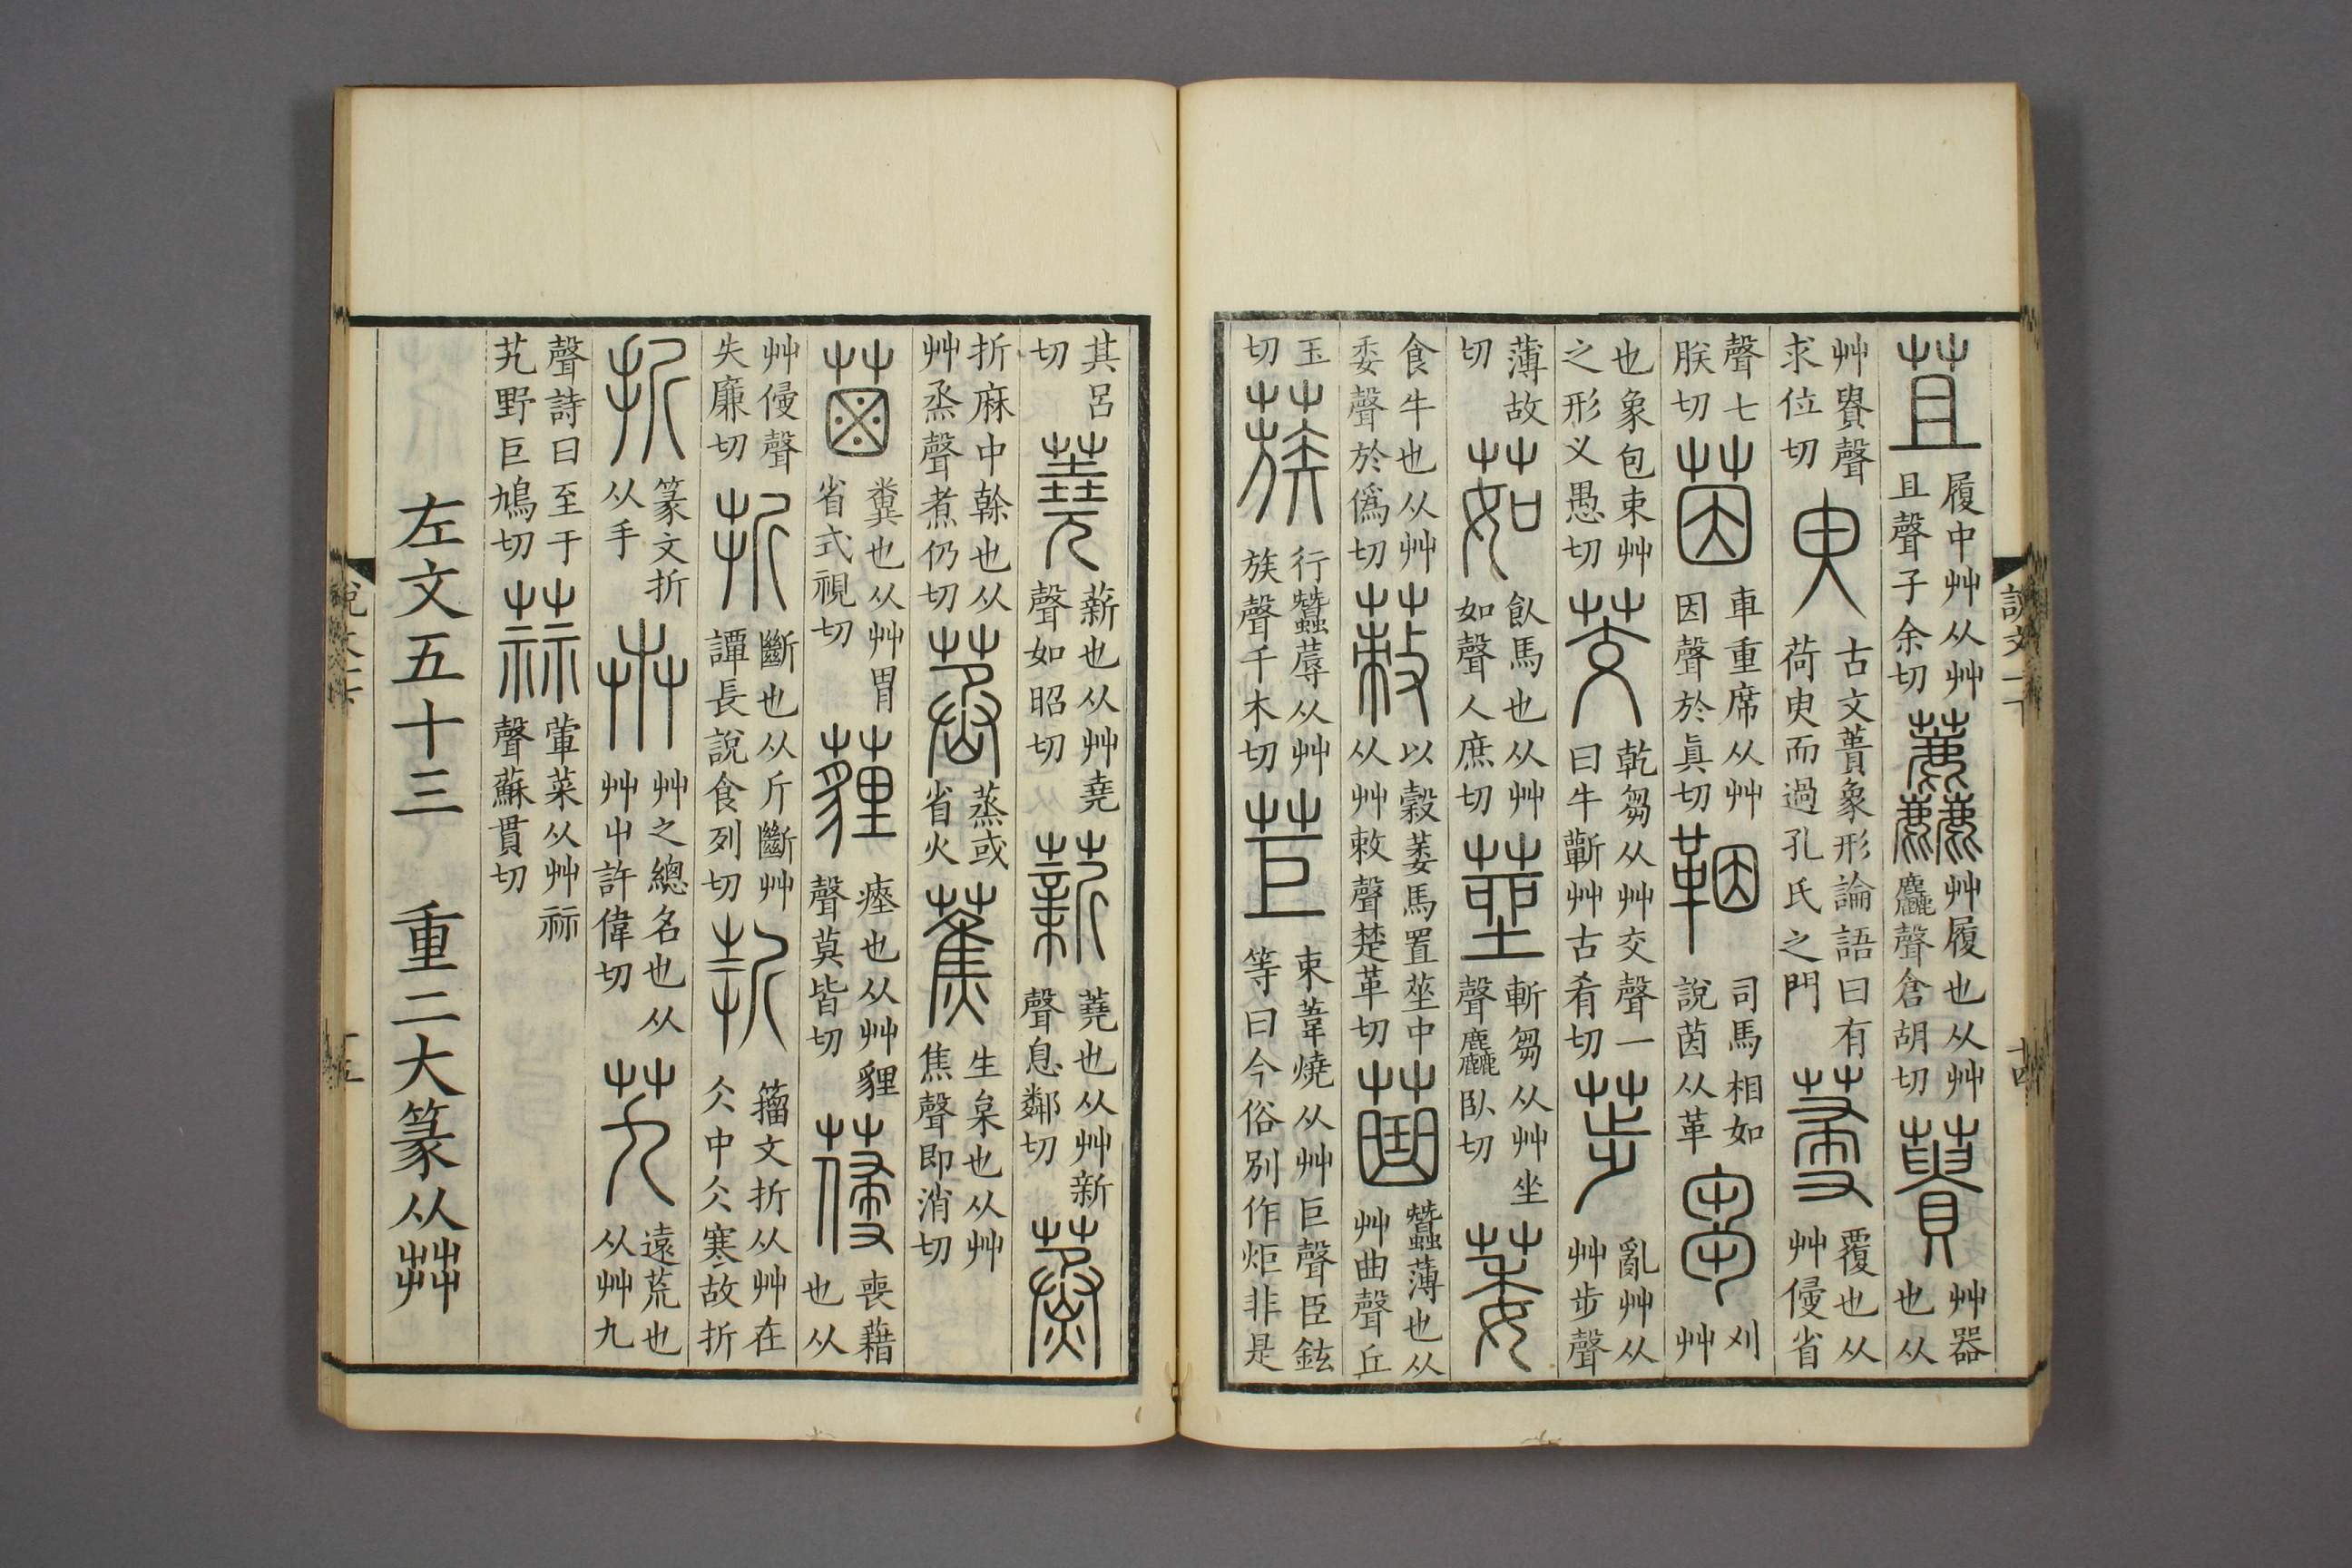 苴履中艸从艸且聲子余切䕲艸履也从艸麤聲倉胡切蕢艸器也从
艸䝿聲求位切臾古文蕢象形論語曰有荷臾而過孔氏之門𦸗覆也从艸侵省
聲七朕切茵車重席从艸因聲於眞切鞇司馬相如說茵从革芻刈艸
也象包束艸之形叉愚切茭乾芻从艸交聲一曰牛蘄艸古肴切荹亂艸从艸步聲
薄故切茹飤馬也从艸如聲人庶切莝斬芻从艸坐聲麤臥切萎
食牛也从艸委聲於僞切蓛以穀萎馬置莝中从艸敕聲楚革切䒼蠶薄也从艸曲聲丘
玉切蔟行蠶蓐从艸族聲千木切苣束葦燒从艸巨聲臣鉉等曰今俗別作炬非是
其呂切蕘薪也从艸堯聲如昭切薪蕘也从艸新聲息鄰切蒸
折麻中榦也从艸烝聲煮仍切𦯟蒸或省火蕉生枲也从艸焦聲即消切
𦳊糞也从艸胃省式視切薶瘞也从艸貍聲莫皆切葠喪藉也从
艸侵聲失廉切𣂚斷也从斤斷艸譚長說食列切籒文折从艸在仌中仌寒故折
折篆文折从手卉艸之總名也从艸屮許偉切艽遠荒也从艸九
聲詩曰至于艽野巨鳩切蒜葷菜从艸祘聲蘇貫切
左文五十三 重二大篆从茻